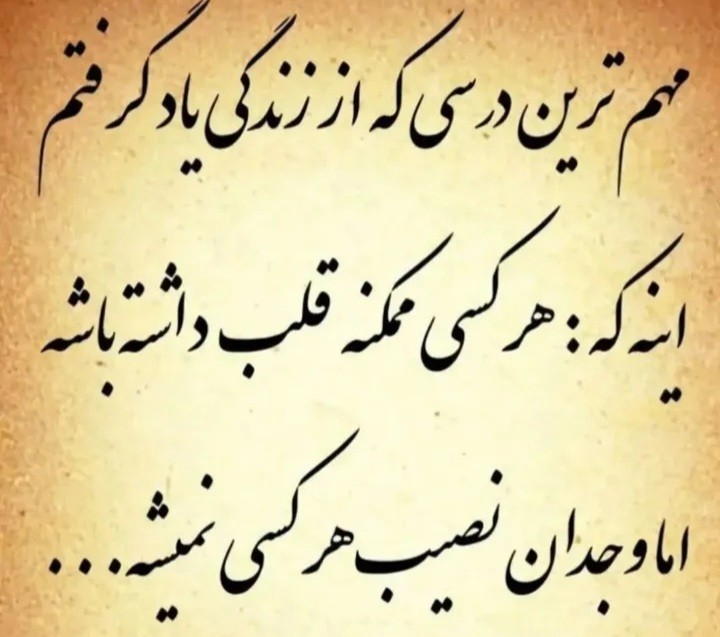 مهم ترین درسی که از زندگی یاد گرفتم
اینه که : هر کسی ممکنه قلب داشته باشه
اما وجدان نصیب هر کسی نمیشه...